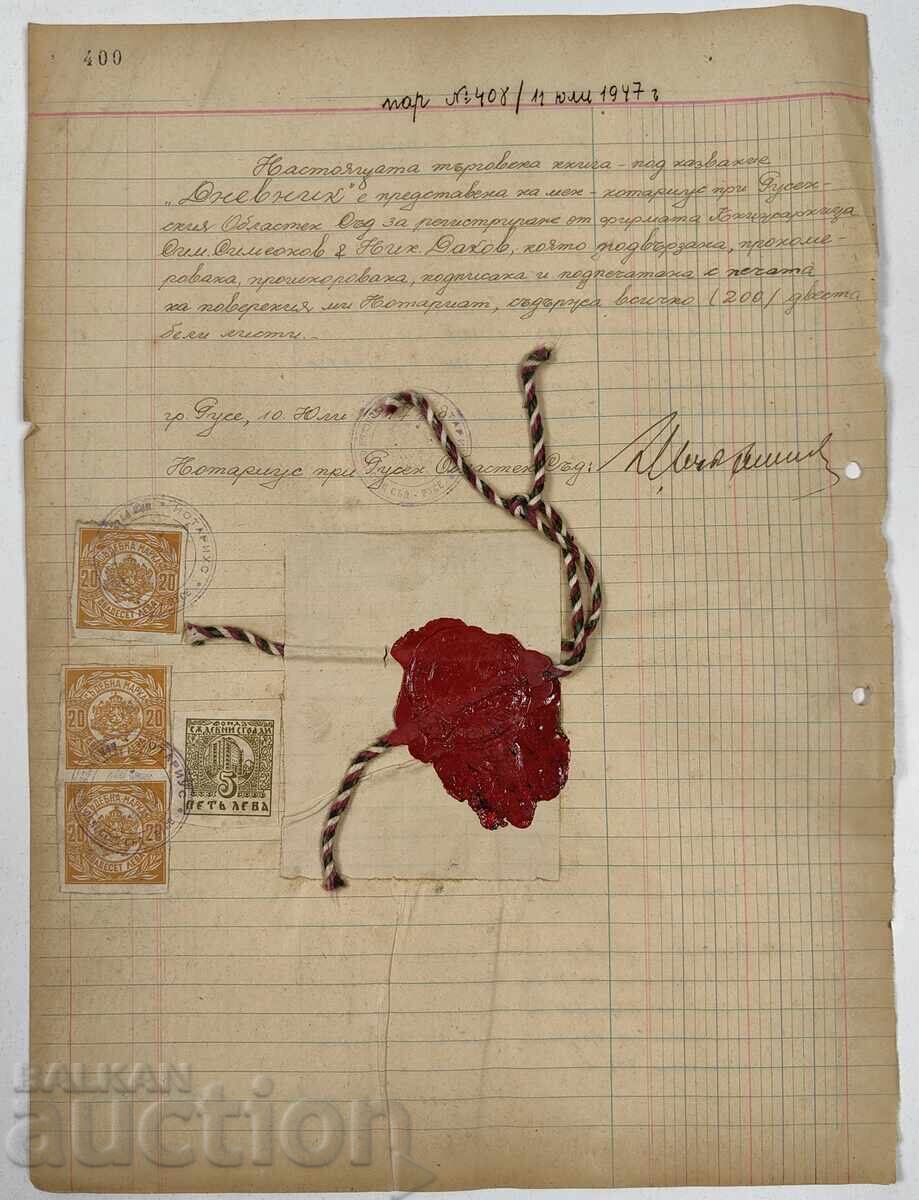 400
пар №408/11 юли 1947 г
Настоящата търговска книга - под название
"Дневник" е представена на мен - нотариус при Русен-
ския Областен Съд за регистриране от фирмата
Сим. Симеонов & Ник. Даков, която подвързана, прономе-
рована, прошнорована, подписана и подпечатана с печата
на поверения ми Нотариат, съдържа всичко /200/ двеста
бели листи.-
гр. Русе, 10. Юли
Нотариус при Русен Областен Съд:
НОТАРИУС
СЪДЕБНА МАРКА
20 20
ДВАДЕСЕТ ЛЕВА
СЪДЕБНА МАРКА
20 20
ФОНДЪ
СѪДЕБНИ СГРАДИ
5
ПЕТЬ ЛЕВА
СЪДЕБНА МАРКА
20 20
ДВАДЕСЕТ ЛЕВА
BALKAN
auction